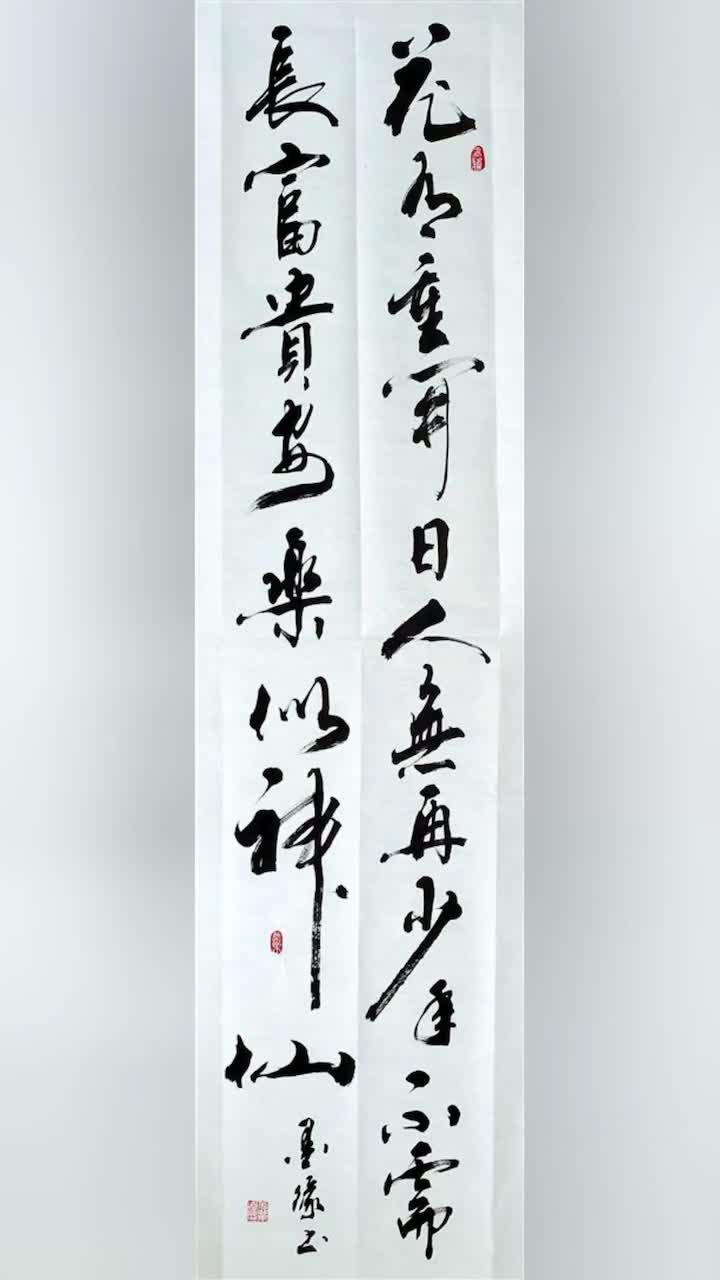 花有重開日人無再少年不需
長富貴安樂似神仙
墨緣书